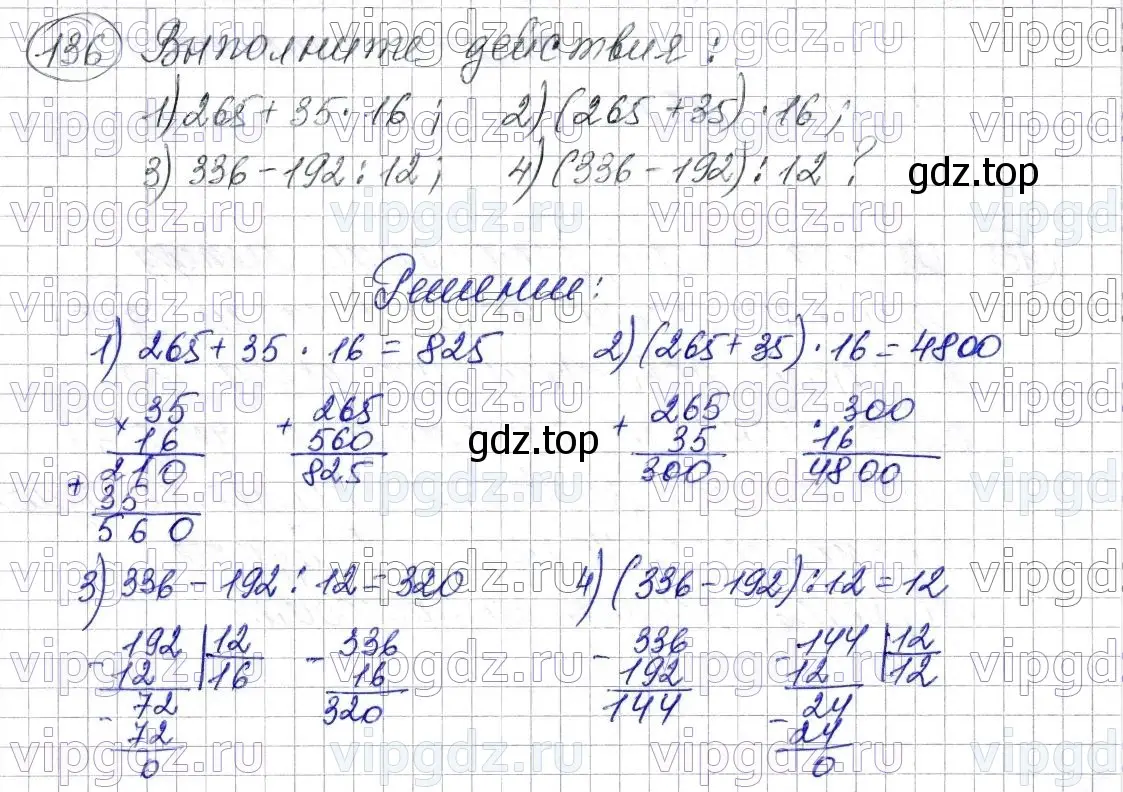 136 Выполните действия:
1) 265 + 35 · 16; 2) (265 + 35) · 16;
3) 336 - 192 : 12; 4) (336 - 192) : 12 ?
gdz.top
Решение:
1) 265 + 35 · 16 = 825 2) (265 + 35) · 16 = 4800
× 35 + 265 + 265 · 300
16 560 35 16
+ 210 825 300 4800
35
560
gdz.top
3) 336 - 192 : 12 = 320 4) (336 - 192) : 12 = 12
- 192 | 12 - 336 - 336 - 144 | 12
12 | 16 16 192 12 | 12
- 72 320 144 - 24
72 24
0 0
vipgdz.ru